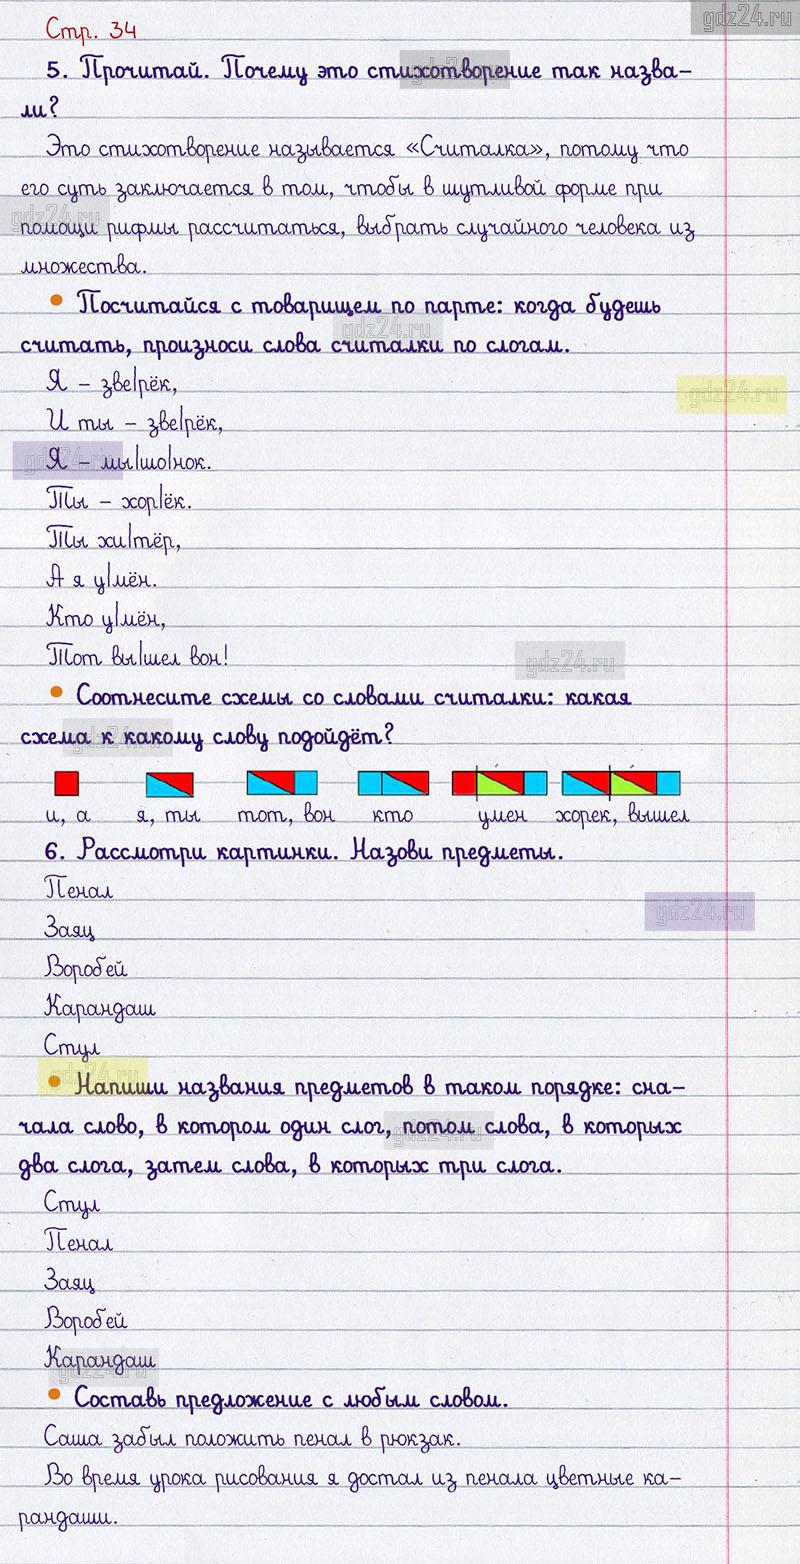 gdz24.ru
Стр. 34
5. Прочитай. Почему это стихотворение так назва-
ли?
Это стихотворение называется «Считалка», потому что
его суть заключается в том, чтобы в шутливой форме при
помощи рифмы рассчитаться, выбрать случайного человека из
множества.
• Посчитайся с товарищем по парте: когда будешь
считать, произноси слова считалки по слогам.
Я – зве|рёк,
И ты – зве|рёк,
Я – мы|шо|нок.
Ты – хор|ёк.
Ты хи|тёр,
А я у|мён.
Кто у|мён,
Тот вы|шел вон!
• Соотнесите схемы со словами считалки: какая
схема к какому слову подойдёт?
и, а я, ты тот, вон кто умен хорек, вышел
6. Рассмотри картинки. Назови предметы.
Пенал
Заяц
Воробей
Карандаш
Стул
• Напиши названия предметов в таком порядке: сна-
чала слово, в котором один слог, потом слова, в которых
два слога, затем слова, в которых три слога.
Стул
Пенал
Заяц
Воробей
Карандаш
• Составь предложение с любым словом.
Саша забыл положить пенал в рюкзак.
Во время урока рисования я достал из пенала цветные ка-
рандаши.
gdz24.ru
gdz24.ru
gdz24.ru
gdz24.ru
gdz24.ru
gdz24.ru
gdz24.ru
gdz24.ru
gdz24.ru
gdz24.ru
gdz24.ru